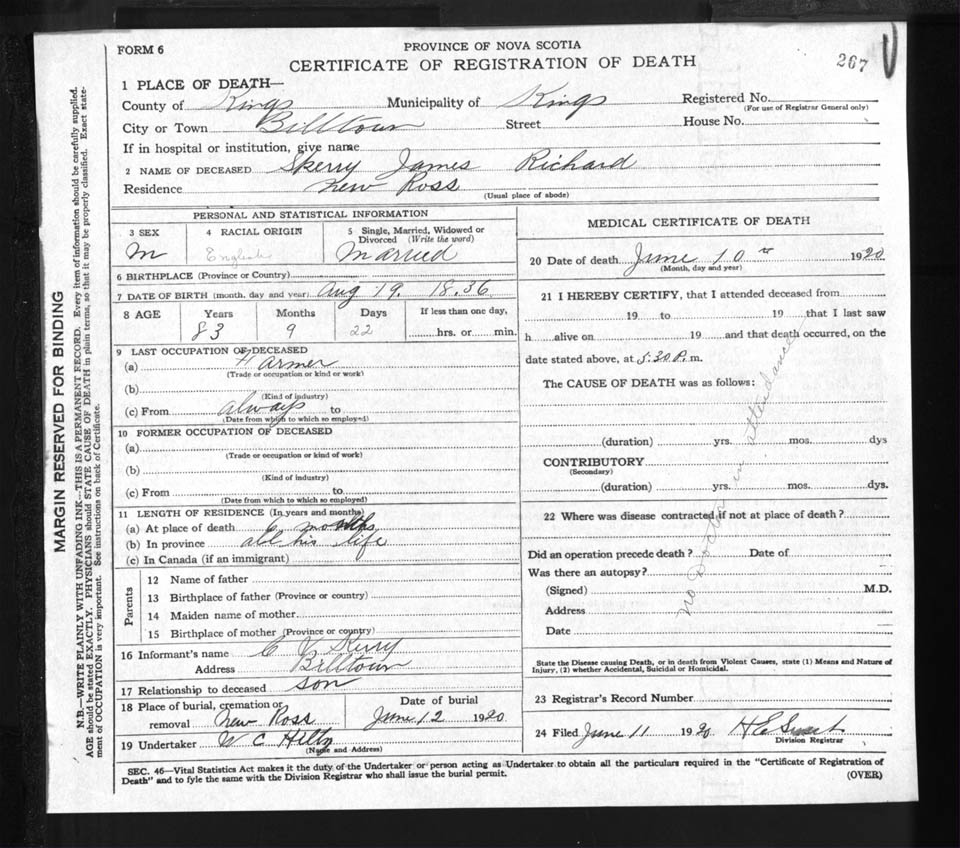 FORM 6
PROVINCE OF NOVA SCOTIA
CERTIFICATE OF REGISTRATION OF DEATH
267
1 PLACE OF DEATH—
County of Kings Municipality of Kings Registered No.
(For use of Registrar General only)
City or Town Billtown Street House No.
If in hospital or institution, give name
2 NAME OF DECEASED Skerry James Richard
Residence New Ross
(Usual place of abode)
PERSONAL AND STATISTICAL INFORMATION
3 SEX 4 RACIAL ORIGIN 5 Single, Married, Widowed or Divorced (Write the word)
M English Married
6 BIRTHPLACE (Province or Country)
7 DATE OF BIRTH (month, day and year) Aug 19. 1836
8 AGE Years Months Days If less than one day,
83 9 22 hrs. or min.
9 LAST OCCUPATION OF DECEASED
(a) Farmer
(Trade or occupation or kind or work)
(b)
(Kind of industry)
(c) From always to
(Date from which to which so employed)
10 FORMER OCCUPATION OF DECEASED
(a)
(Trade or occupation or kind of work)
(b)
(Kind of industry)
(c) From to
(Date from which to which so employed)
11 LENGTH OF RESIDENCE (In years and months)
(a) At place of death 6 months
(b) In province all his life
(c) In Canada (if an immigrant)
Parents
12 Name of father
13 Birthplace of father (Province or country)
14 Maiden name of mother
15 Birthplace of mother (Province or country)
16 Informant's name C Skerry
Address Billtown
17 Relationship to deceased son
18 Place of burial, cremation or removal New Ross
Date of burial
June 12 1920
19 Undertaker W C Hiltz
(Name and Address)
MEDICAL CERTIFICATE OF DEATH
20 Date of death June 10 1920
(Month, day and year)
21 I HEREBY CERTIFY, that I attended deceased from
19 to 19 that I last saw
h alive on 19 and that death occurred, on the
date stated above, at 5:30 P.m.
The CAUSE OF DEATH was as follows:
(duration) yrs. mos. dys
CONTRIBUTORY
(Secondary)
(duration) yrs. mos. dys.
no Doctor in attendance
22 Where was disease contracted if not at place of death?
Did an operation precede death? Date of
Was there an autopsy?
(Signed) M.D.
Address
Date
State the Disease causing Death, or in death from Violent Causes, state (1) Means and Nature of
Injury, (2) whether Accidental, Suicidal or Homicidal.
23 Registrar's Record Number
24 Filed June 11 1920 H E
Division Registrar
SEC. 46—Vital Statistics Act makes it the duty of the Undertaker or person acting as Undertaker to obtain all the particulars required in the "Certificate of Registration of
Death" and to fyle the same with the Division Registrar who shall issue the burial permit.
(OVER)
MARGIN RESERVED FOR BINDING
N.B.—WRITE PLAINLY WITH UNFADING INK—THIS IS A PERMANENT RECORD. Every item of information should be carefully supplied.
AGE should be stated EXACTLY. PHYSICIANS should STATE CAUSE OF DEATH in plain terms, so that it may be properly classified. Exact state-
ment of OCCUPATION is very important. See instructions on back of Certificate.